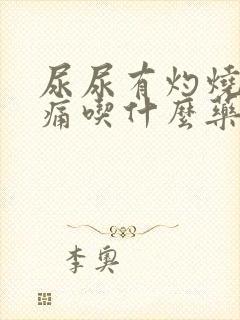 尿尿有灼燒
痛喫什麼藥
李奧